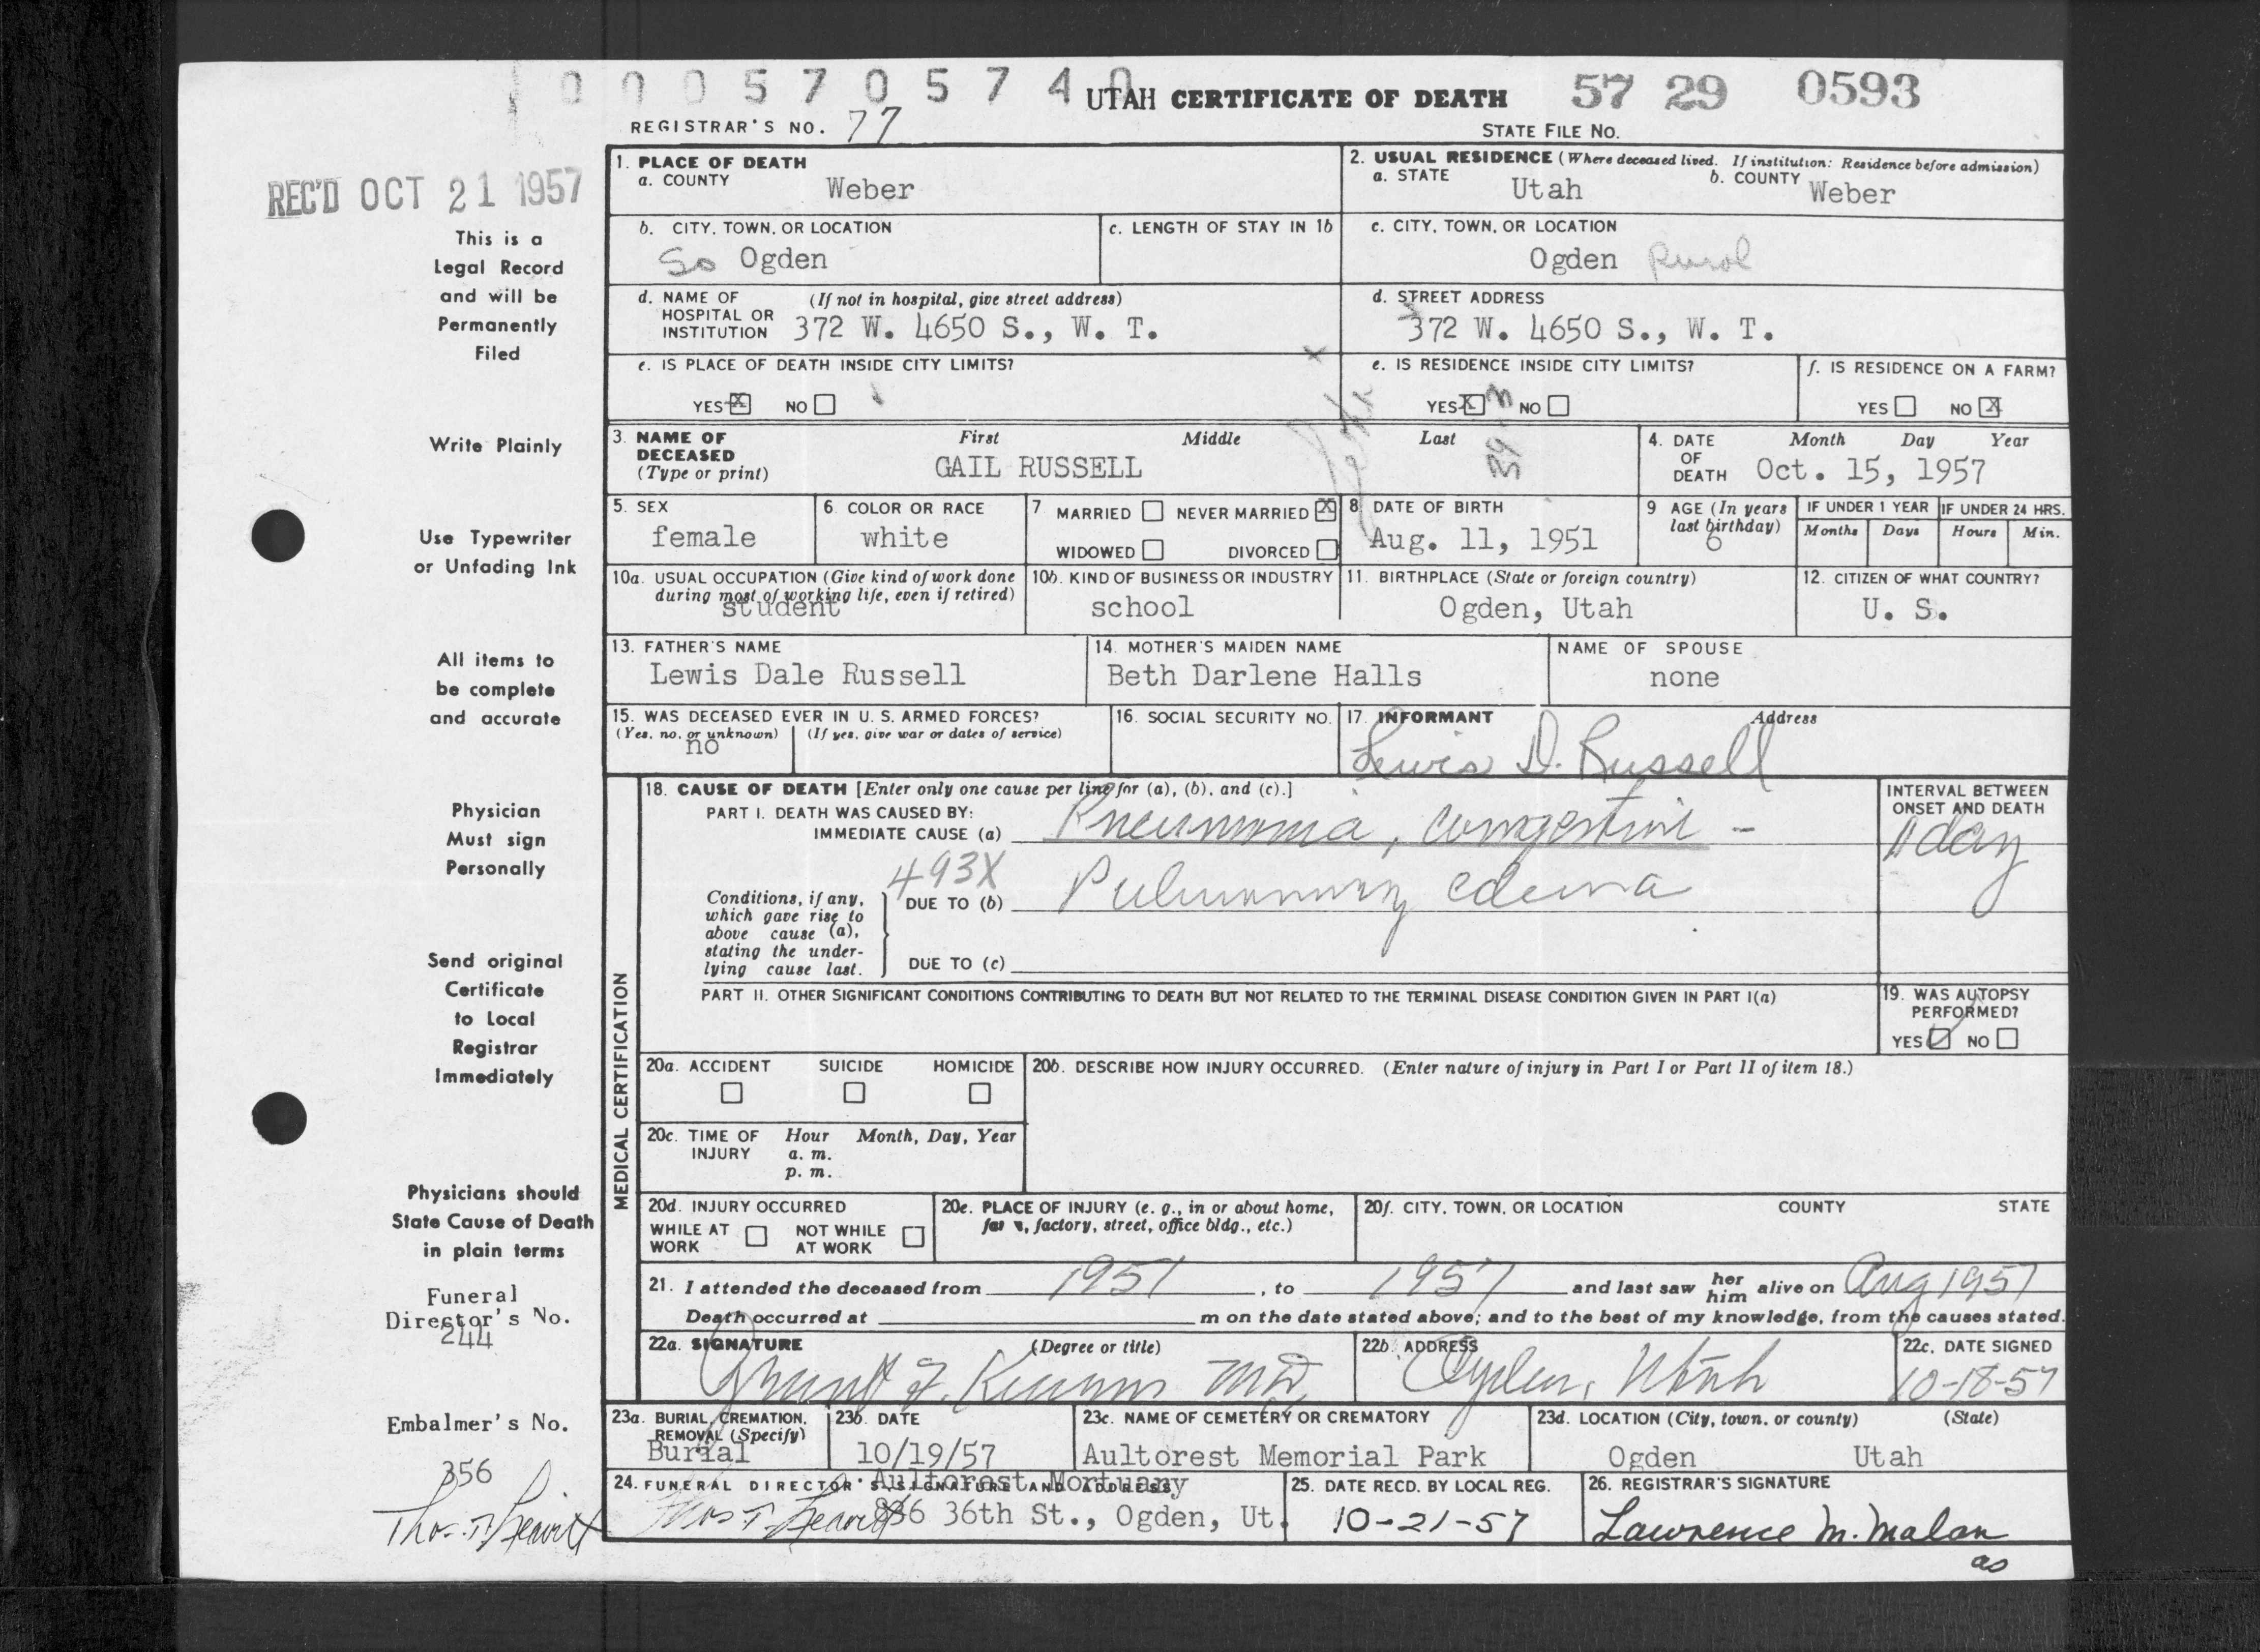 0 0 0 5 7 0 5 7 4 0 UTAH CERTIFICATE OF DEATH 57 29 0593
REGISTRAR'S NO. 77 STATE FILE NO.
REC'D OCT 21 1957
This is a
Legal Record
and will be
Permanently
Filed
Write Plainly
Use Typewriter
or Unfading Ink
All items to
be complete
and accurate
Physician
Must sign
Personally
Send original
Certificate
to Local
Registrar
Immediately
Physicians should
State Cause of Death
in plain terms
Funeral
Director's No.
244
Embalmer's No.
356
Thos. T. Leavitt
1. PLACE OF DEATH
a. COUNTY Weber
2. USUAL RESIDENCE (Where deceased lived. If institution: Residence before admission)
a. STATE Utah b. COUNTY Weber
b. CITY, TOWN, OR LOCATION
So Ogden
c. LENGTH OF STAY IN 1b
c. CITY, TOWN, OR LOCATION
Ogden Rural
d. NAME OF HOSPITAL OR INSTITUTION (If not in hospital, give street address)
372 W. 4650 S., W. T.
d. STREET ADDRESS
372 W. 4650 S., W. T.
e. IS PLACE OF DEATH INSIDE CITY LIMITS?
YES X NO
e. IS RESIDENCE INSIDE CITY LIMITS?
YES X NO
f. IS RESIDENCE ON A FARM?
YES NO X
3. NAME OF DECEASED (Type or print) First Middle Last
GAIL RUSSELL
4. DATE OF DEATH Month Day Year
Oct. 15, 1957
5. SEX
female
6. COLOR OR RACE
white
7 MARRIED NEVER MARRIED X
WIDOWED DIVORCED
8. DATE OF BIRTH
Aug. 11, 1951
9 AGE (In years last birthday)
6
IF UNDER 1 YEAR IF UNDER 24 HRS.
Months Days Hours Min.
10a. USUAL OCCUPATION (Give kind of work done during most of working life, even if retired)
student
10b. KIND OF BUSINESS OR INDUSTRY
school
11. BIRTHPLACE (State or foreign country)
Ogden, Utah
12. CITIZEN OF WHAT COUNTRY?
U. S.
13. FATHER'S NAME
Lewis Dale Russell
14. MOTHER'S MAIDEN NAME
Beth Darlene Halls
NAME OF SPOUSE
none
15. WAS DECEASED EVER IN U. S. ARMED FORCES?
(Yes, no, or unknown) (If yes, give war or dates of service)
no
16. SOCIAL SECURITY NO.
17. INFORMANT Address
Lewis D. Russell
MEDICAL CERTIFICATION
18. CAUSE OF DEATH [Enter only one cause per line for (a), (b), and (c).]
PART I. DEATH WAS CAUSED BY:
IMMEDIATE CAUSE (a) Pneumonia, congestive -
INTERVAL BETWEEN ONSET AND DEATH
1 day
493X
Conditions, if any, which gave rise to above cause (a), stating the underlying cause last.
DUE TO (b) Pulmonary edema
DUE TO (c)
PART II. OTHER SIGNIFICANT CONDITIONS CONTRIBUTING TO DEATH BUT NOT RELATED TO THE TERMINAL DISEASE CONDITION GIVEN IN PART I(a)
19. WAS AUTOPSY PERFORMED?
YES NO
20a. ACCIDENT SUICIDE HOMICIDE
20b. DESCRIBE HOW INJURY OCCURRED. (Enter nature of injury in Part I or Part II of item 18.)
20c. TIME OF INJURY Hour Month, Day, Year
a. m.
p. m.
20d. INJURY OCCURRED
WHILE AT WORK NOT WHILE AT WORK
20e. PLACE OF INJURY (e. g., in or about home, farm, factory, street, office bldg., etc.)
20f. CITY, TOWN, OR LOCATION COUNTY STATE
21. I attended the deceased from 1951, to 1957 and last saw her him alive on Aug 1957
Death occurred at m on the date stated above; and to the best of my knowledge, from the causes stated.
22a. SIGNATURE (Degree or title)
MD
22b. ADDRESS
Ogden, Utah
22c. DATE SIGNED
10-18-57
23a. BURIAL, CREMATION, REMOVAL (Specify)
Burial
23b. DATE
10/19/57
23c. NAME OF CEMETERY OR CREMATORY
Aultorest Memorial Park
23d. LOCATION (City, town, or county) (State)
Ogden Utah
24. FUNERAL DIRECTOR'S SIGNATURE AND ADDRESS
Aultorest Mortuary
Thos T. Leavitt 836 36th St., Ogden, Ut.
25. DATE RECD. BY LOCAL REG.
10-21-57
26. REGISTRAR'S SIGNATURE
Lawrence M. Malan
as